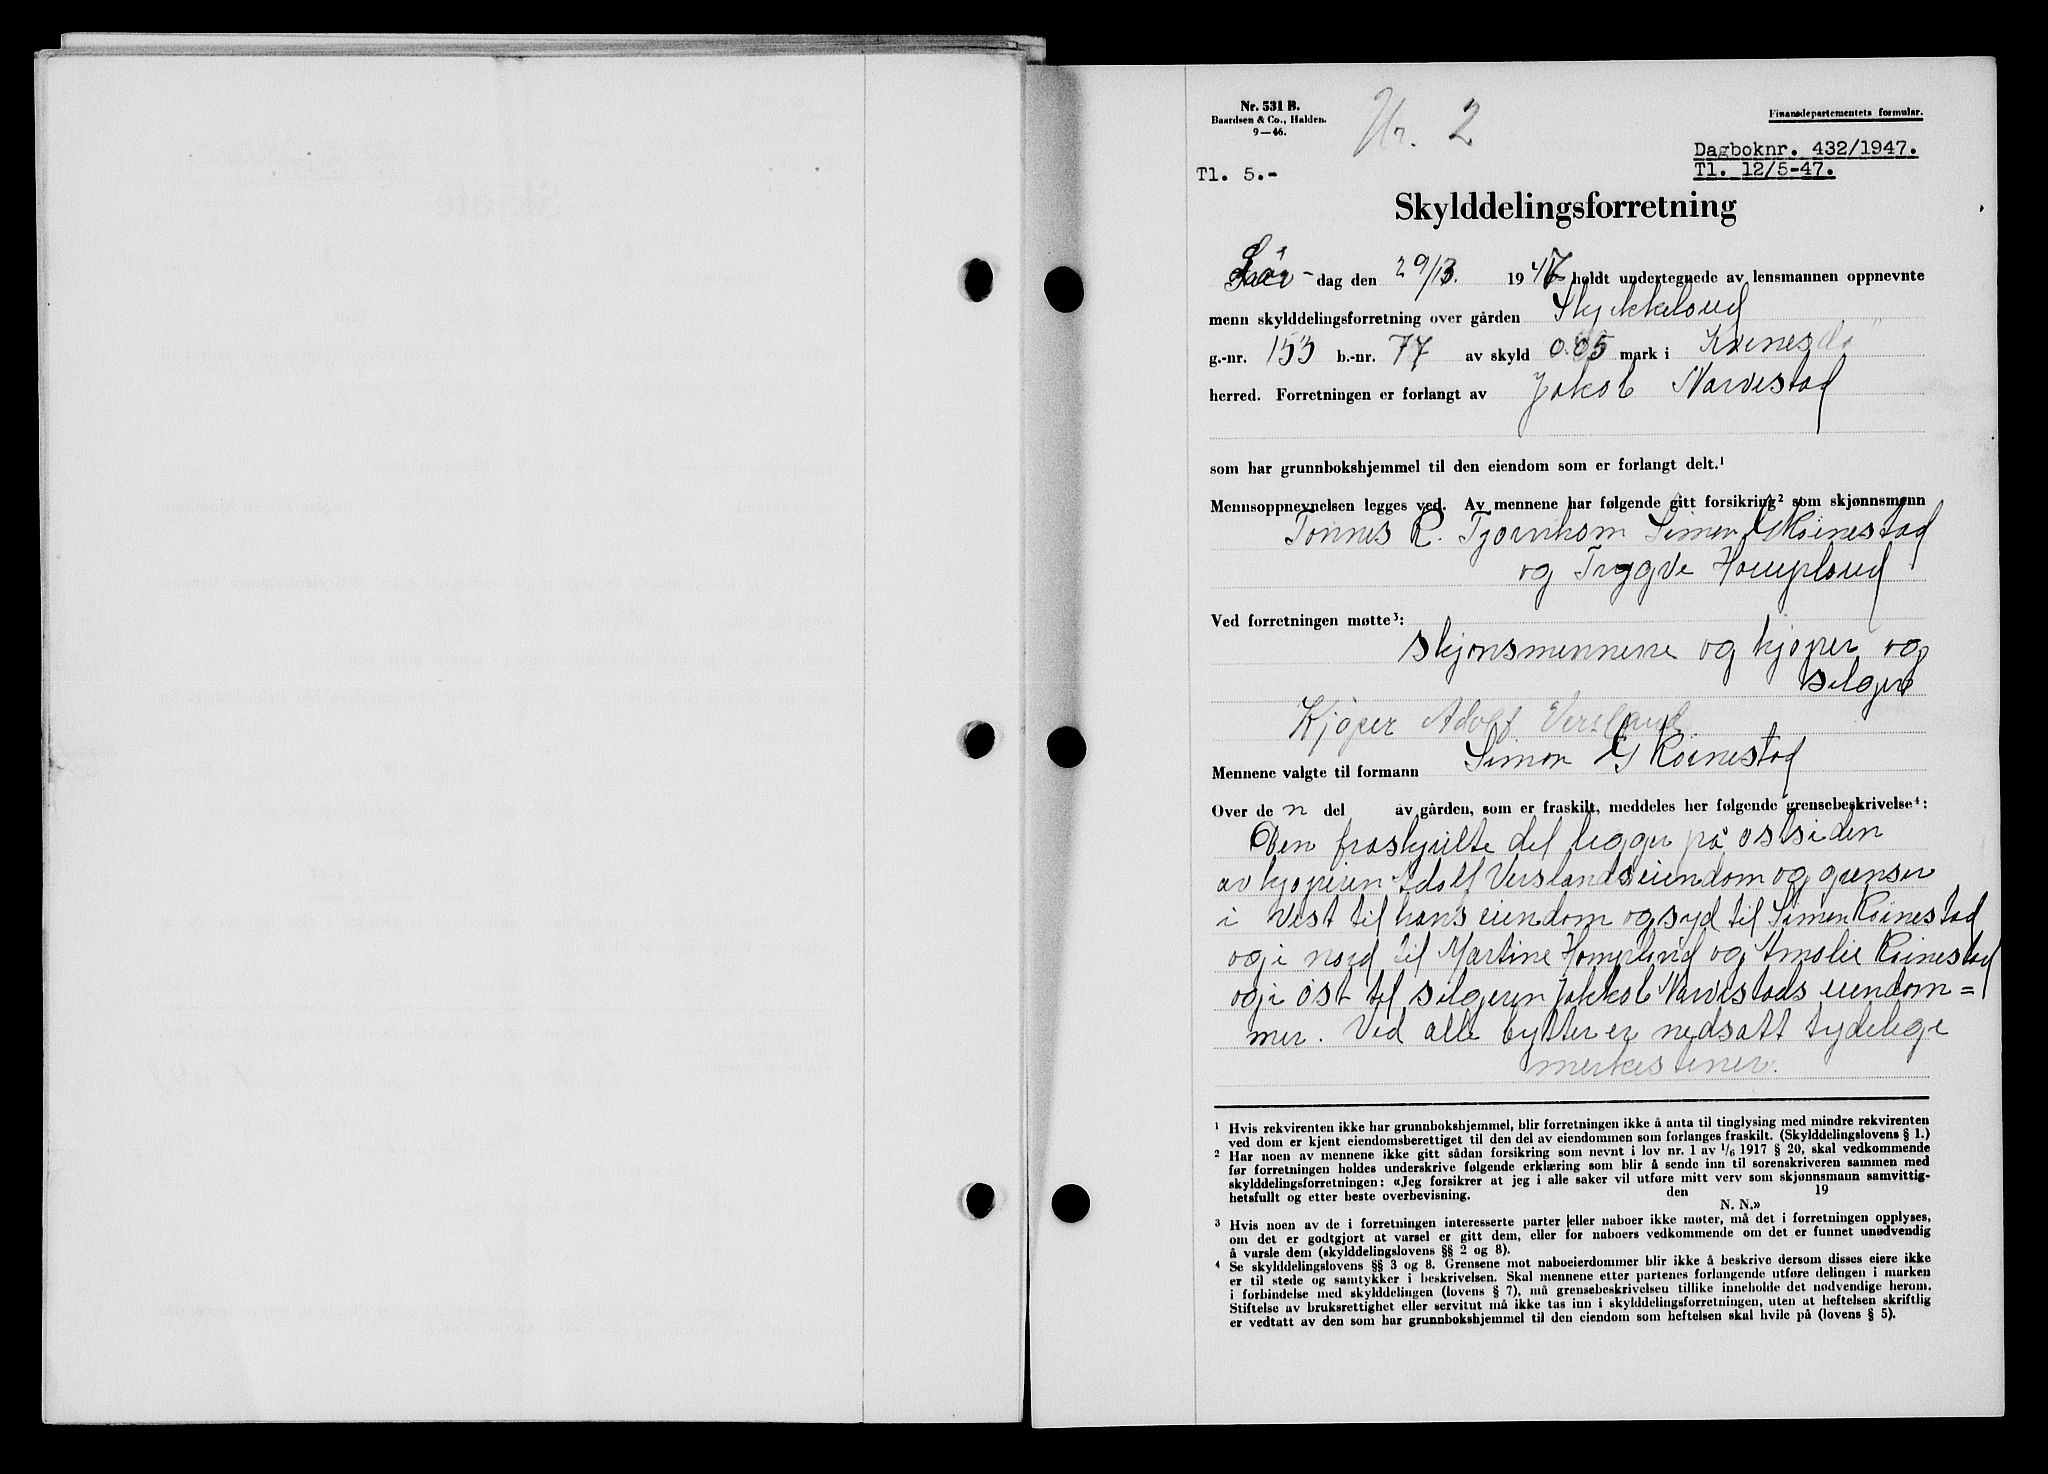 Nr. 531 B.
Baardsen & Co., Halden.
9—46.
Nr. 2
Finansdepartementets formular.
Dagboknr. 432/1947.
Tl. 12/5-47.
Tl. 5.-
Skylddelingsforretning
Lör- dag den 29/3. 1947 holdt undertegnede av lensmannen oppnevnte
menn skylddelingsforretning over gården Stykkeland
g.-nr. 153 b.-nr. 77 av skyld 0.05 mark i Kvinesdal
herred. Forretningen er forlangt av Jakob Narvestad
som har grunnbokshjemmel til den eiendom som er forlangt delt.¹
Mennsoppnevnelsen legges ved. Av mennene har følgende gitt forsikring² som skjønnsmenn
Tönnes R. Tjornhom Simon G Röinestad
og Trygve Hompland
Ved forretningen møtte³:
skjönsmennene og kjøper og
selger
Kjøper Adolf Versland
Mennene valgte til formann Simon G Röinestad
Over de n del av gården, som er fraskilt, meddeles her følgende grensebeskrivelse⁴:
Den fraskjulte del ligger på östsiden
av kjøperen Adolf Verslands eiendom og grenser
i vest til hans eiendom og syd til Simon Röinestad
og i nord til Martine Hompland og Amalie Röinestad
og i öst til selgeren Jakkob Narvestads eiendom=
mer. Ved alle bytter er nedsatt tydelige
merkestener.
¹ Hvis rekvirenten ikke har grunnbokshjemmel, blir forretningen ikke å anta til tinglysing med mindre rekvirenten
ved dom er kjent eiendomsberettiget til den del av eiendommen som forlanges fraskilt. (Skylddelingslovens § 1.)
² Har noen av mennene ikke gitt sådan forsikring som nevnt i lov nr. 1 av 1/6 1917 § 20, skal vedkommende
før forretningen holdes underskrive følgende erklæring som blir å sende inn til sorenskriveren sammen med
skylddelingsforretningen: «Jeg forsikrer at jeg i alle saker vil utføre mitt verv som skjønnsmann samvittig-
hetsfullt og etter beste overbevisning. den 19
N. N.»
³ Hvis noen av de i forretningen interesserte parter eller naboer ikke møter, må det i forretningen opplyses,
om det er godtgjort at varsel er gitt dem, eller for naboers vedkommende om det er funnet unødvendig
å varsle dem (skylddelingslovens §§ 2 og 8).
⁴ Se skylddelingslovens §§ 3 og 8. Grensene mot naboeierdommer blir ikke å beskrive dersom disses eiere ikke
er til stede og samtykker i beskrivelsen. Skal mennene etter partenes forlangende utføre delingen i marken
i forbindelse med skylddelingen (lovens § 7), må grensebeskrivelsen tillike inneholde det nødvendige herom.
Stiftelse av bruksrettighet eller servitut må ikke tas inn i skylddelingsforretningen, uten at heftelsen skriftlig
er vedtatt av den som har grunnbokshjemmel til den eiendom som heftelsen skal hvile på (lovens § 5).